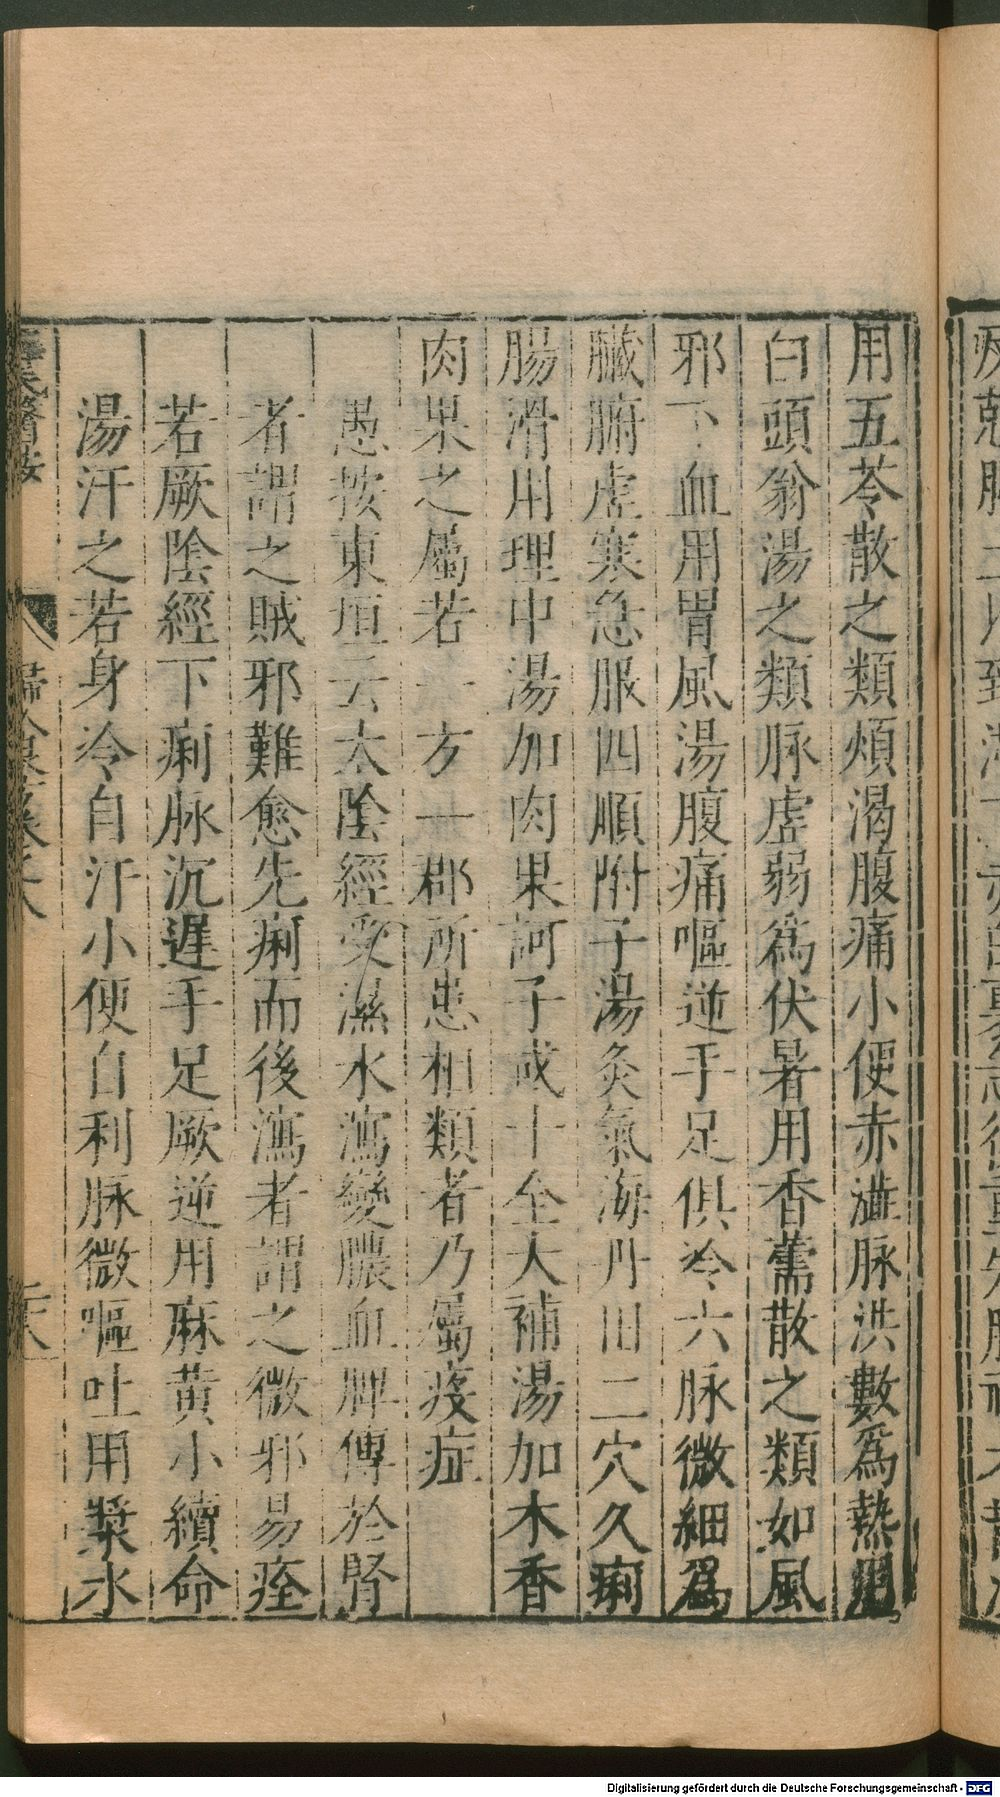 用五苓散之類煩渴腹痛小便赤澁脉洪數爲熱用
白頭翁湯之類脉虛弱爲伏暑用香薷散之類如風
邪下血用胃風湯腹痛嘔逆手足俱冷六脉微細爲
臟腑虛寒急服四順附子湯灸氣海丹田二穴久痢
腸滑用理中湯加肉果訶子或十全大補湯加木香
肉果之屬若一方一郡所患相類者乃屬疫症
愚按東垣云太陰經受濕水瀉變膿血脾傳於腎
者謂之賊邪難愈先痢而後瀉者謂之微邪易痊
若厥陰經下痢脉沉遲手足厥逆用麻黄小續命
湯汗之若身冷自汗小便自利脉微嘔吐用漿水
Digitalisierung gefördert durch die Deutsche Forschungsgemeinschaft - DFG